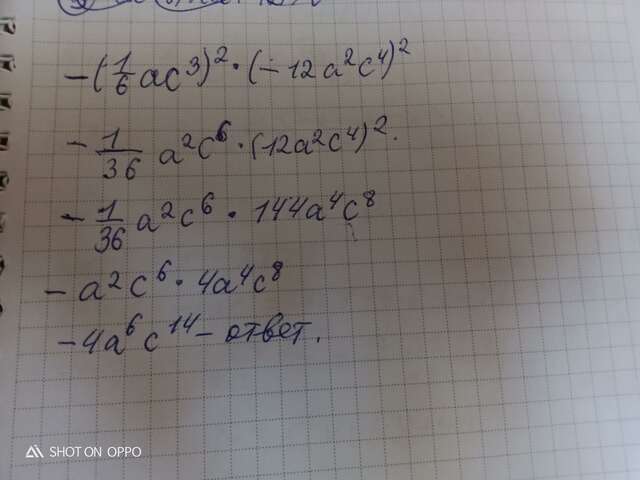 -(1/6 ac³)² · (-12a²c⁴)²
-1/36 a²c⁶ · (12a²c⁴)².
-1/36 a²c⁶ · 144a⁴c⁸
-a²c⁶ · 4a⁴c⁸
-4a⁶c¹⁴ - ответ.
SHOT ON OPPO